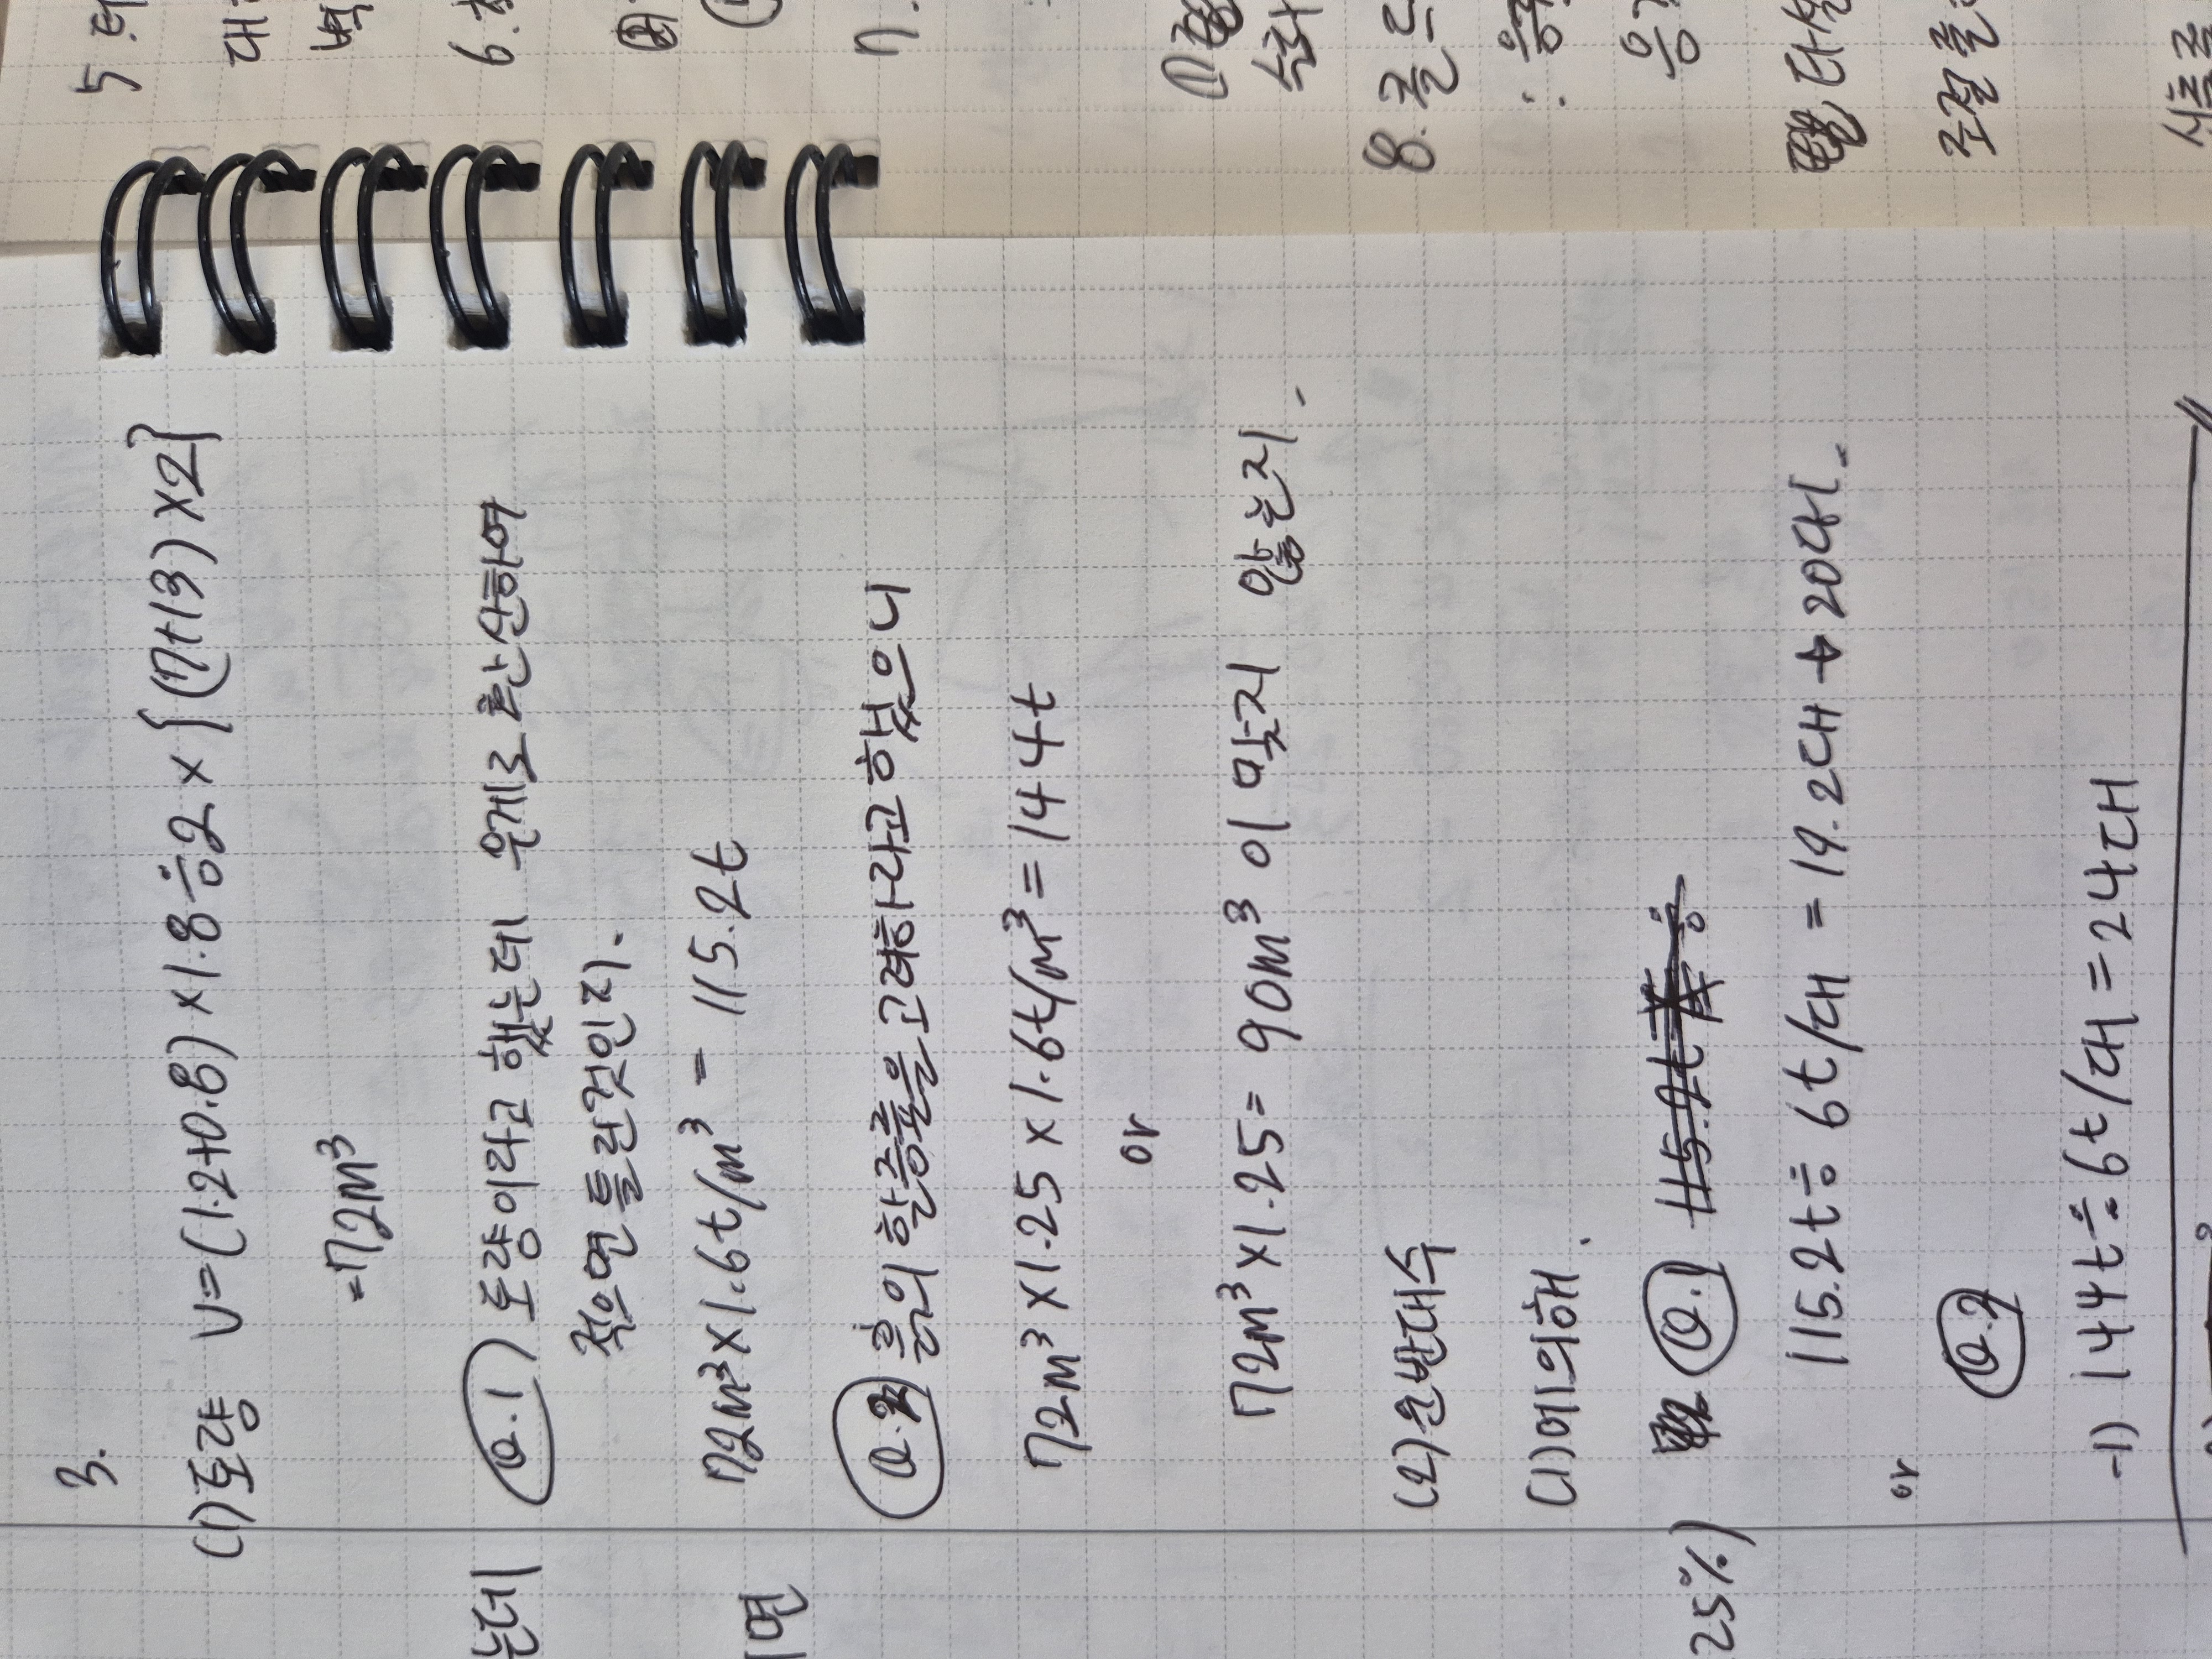 3.
(1) 토량 V=(1.2+0.8)×1.8÷2×{(7+13)×2}
=72m³
Q.1) 토량이라고 했는데 무게로 환산하여
적으면 틀린것인지.
72m³×1.6t/m³ = 115.2t
Q.2 흙의 할증률을 고려하라고 했으니
72m³×1.25×1.6t/m³=144t
or
72m³×1.25= 90m³ 이 맞지 않는지.
(2)운반대수
(1)에 의해.
Q.1
115.2t÷6t/대 = 19.2대 → 20대.
or
Q.2
-1) 144t÷6t/대=24대
는데
면
25%)
5
대
벽
6.
7.
8.